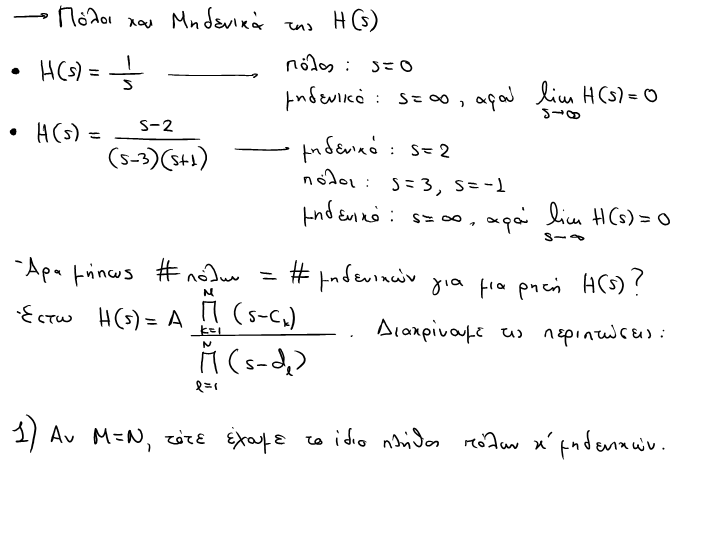 → Πόλοι και Μηδενικά της H(s)
• H(s) = 1/s → πόλος: s=0
μηδενικό: s=∞, αφού lim s→∞ H(s)=0
• H(s) = (s-2)/((s-3)(s+1)) → μηδενικό: s=2
πόλοι: s=3, s=-1
μηδενικό: s=∞, αφού lim s→∞ H(s)=0
-Άρα μήπως # πόλων = # μηδενικών για μια ρητή H(s)?
-Έστω H(s) = A ∏_{k=1}^{M} (s-c_k) / ∏_{l=1}^{N} (s-d_l). Διακρίνουμε τις περιπτώσεις:
1) Αν M=N, τότε έχουμε το ίδιο πλήθος πόλων κ' μηδενικών.